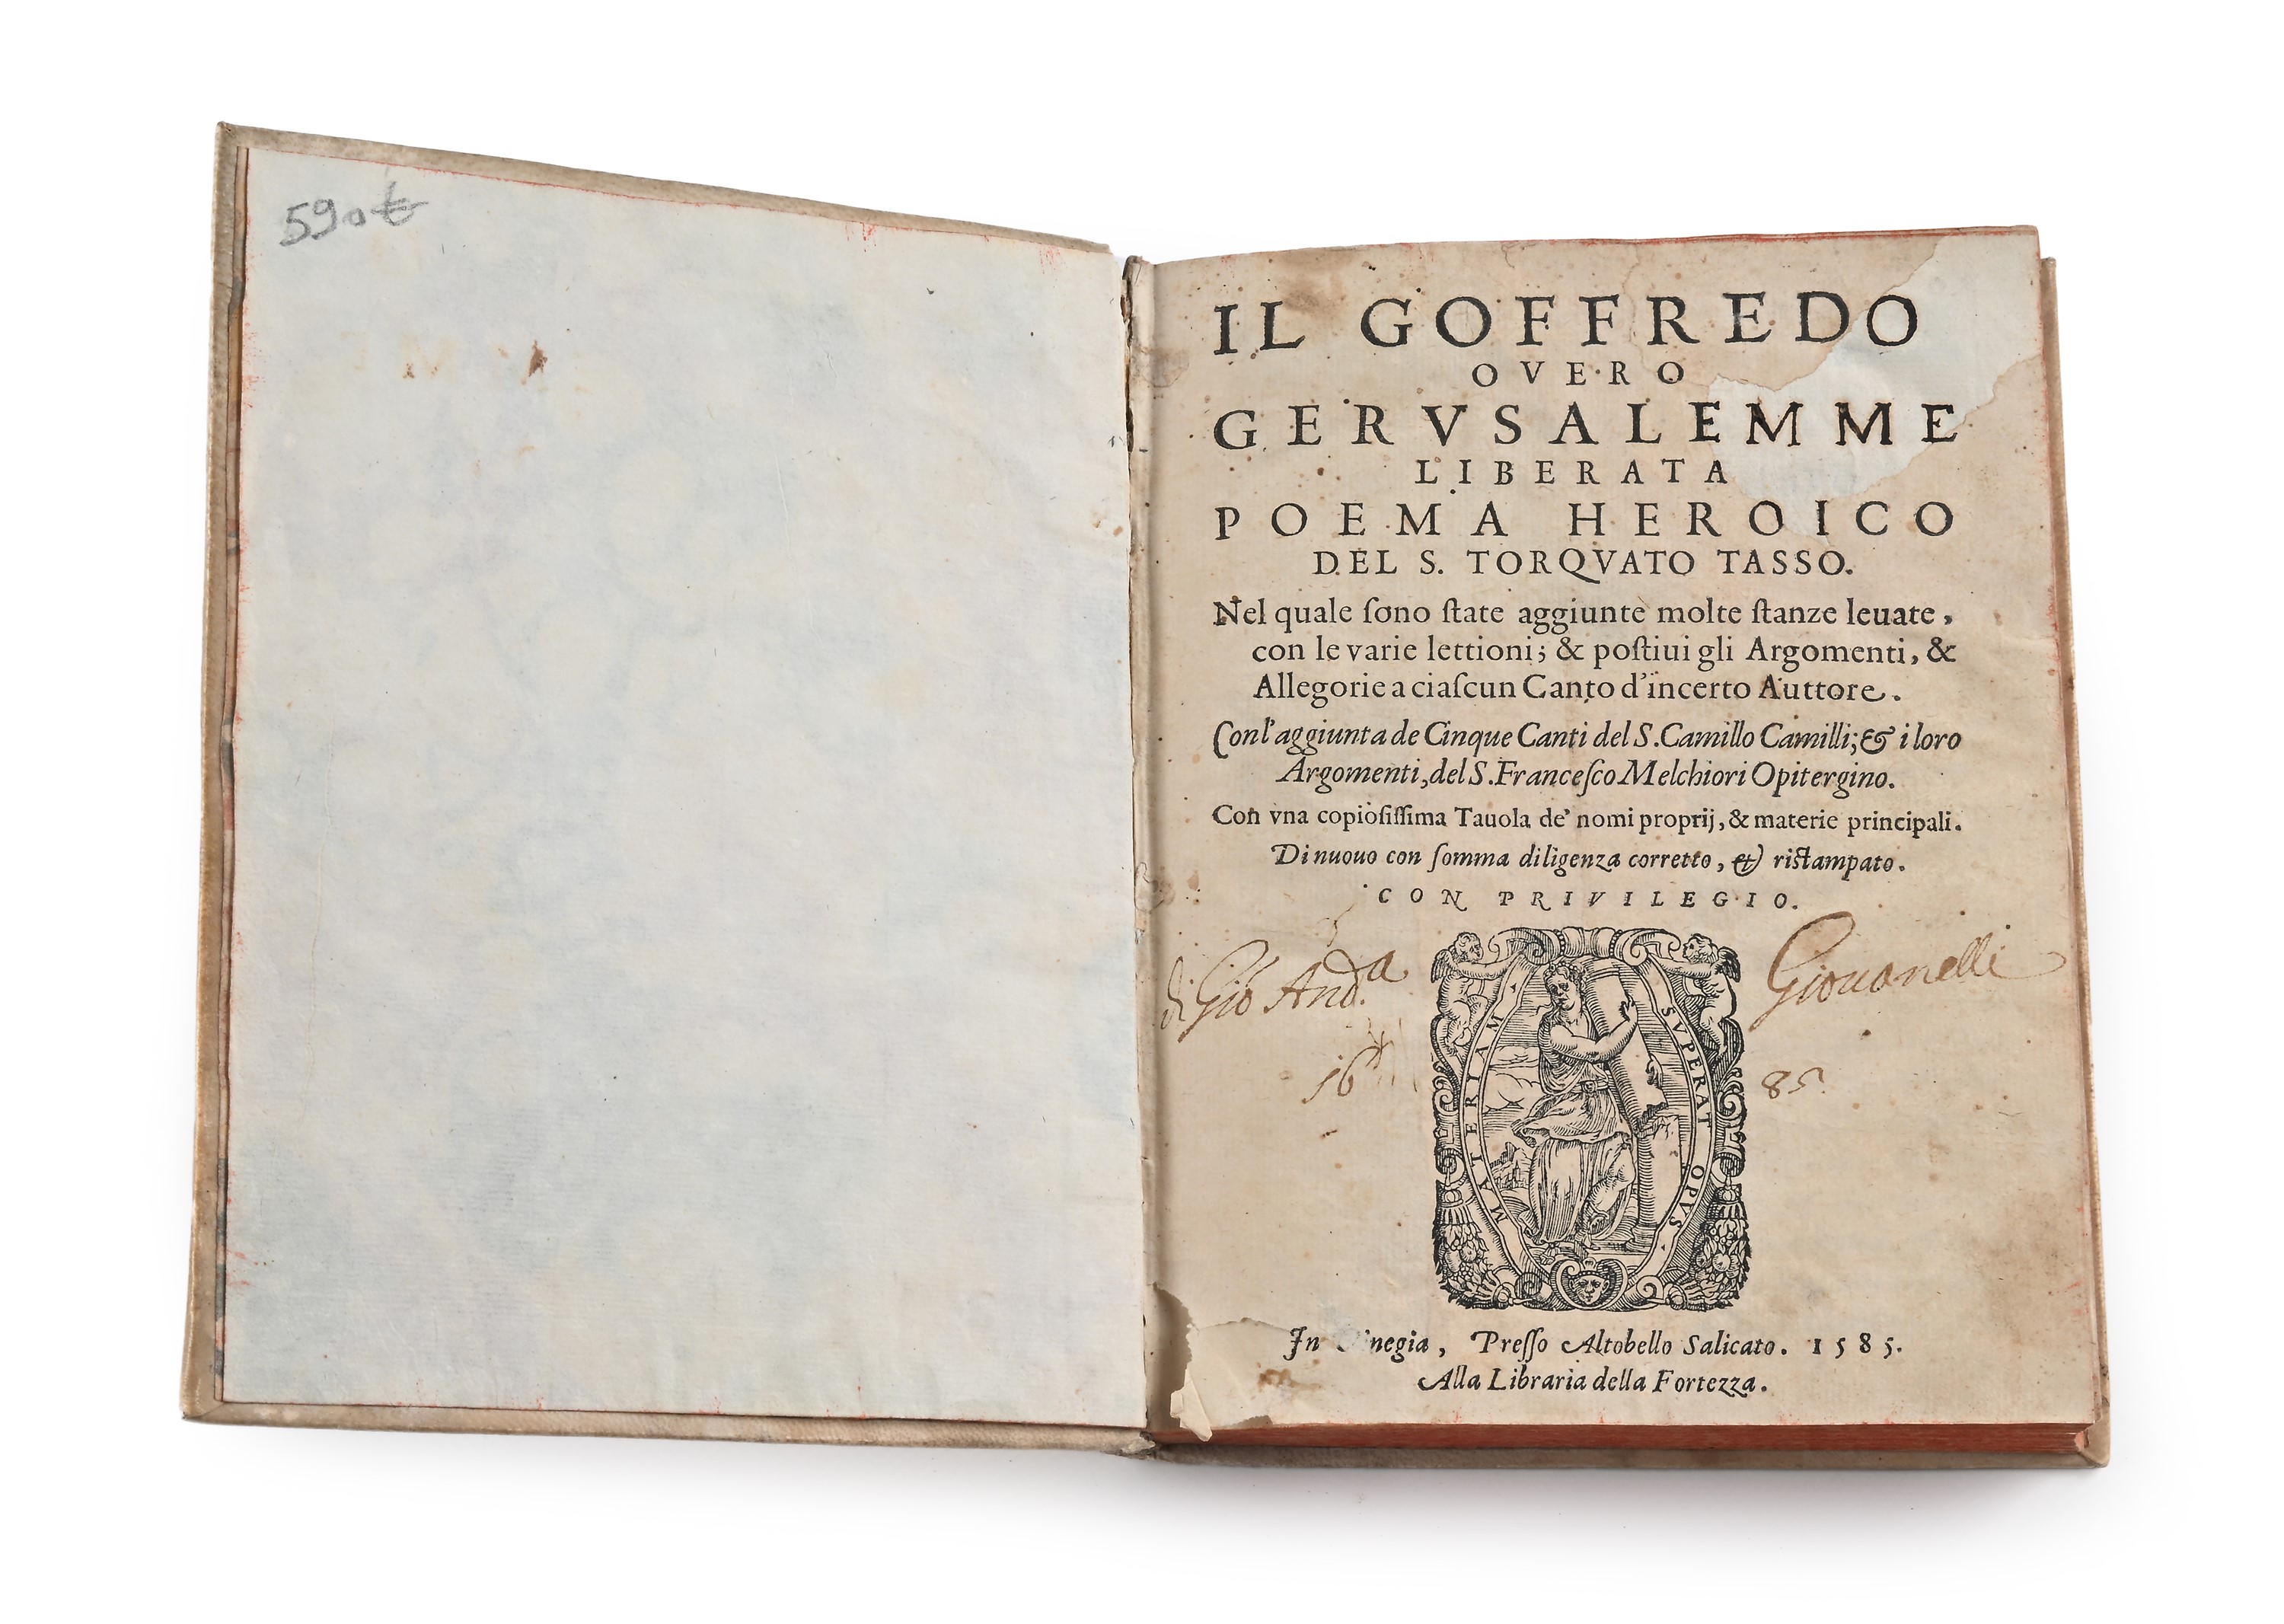 590€
IL GOFFREDO
OVERO
GERVSALEMME
LIBERATA
POEMA HEROICO
DEL S. TORQVATO TASSO.
Nel quale ſono ſtate aggiunte molte ſtanze leuate,
con le varie lettioni; & poſtiui gli Argomenti, &
Allegorie a ciaſcun Canto d'incerto Auttore.
Con l'aggiunta de Cinque Canti del S. Camillo Camilli; & i loro
Argomenti, del S. Franceſco Melchiori Opitergino.
Con vna copioſiſſima Tauola de' nomi proprij, & materie principali.
Di nuouo con ſomma diligenza corretto, & riſtampato.
CON PRIVILEGIO.
di Gio And.a Giouanelli
16 85
MATERIAM SVPERAT OPVS
In inegia, Preſſo Altobello Salicato. 1585.
Alla Libraria della Fortezza.